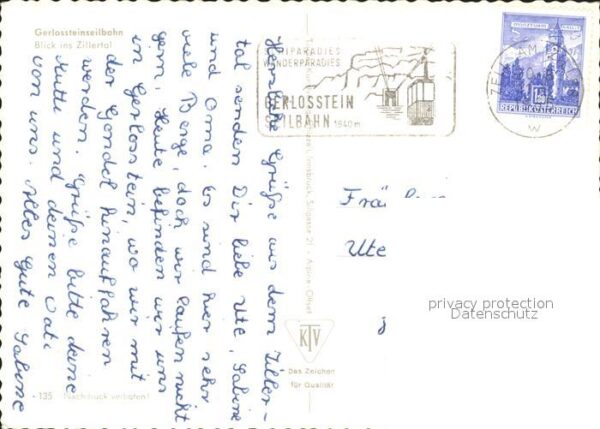 Gerlossteinseilbahn
Blick ins Zillertal
Herzliche Grüße aus dem Ziller-
tal senden Dir liebe Ute, Sabine
und Oma. Es sind hier sehr
viele Berge, doch wir laufen nicht
gern. Heute befinden wir uns
in Gerlosstein, wo wir mit
der Gondel hinauffahren
werden. Grüße bitte deine
Mutti und deinen Vati
von uns. Alles Gute Sabine
135 Nachdruck verboten!
SKIPARADIES
WANDERPARADIES
GERLOSSTEIN
SEILBAHN 1640 m
Innsbruck, Sillgasse 21 - Alpina-Offset
KTV
Das Zeichen
für Qualität
ZELL AM
W
REPUBLIK ÖSTERREICH
Ute
privacy protection
Datenschutz